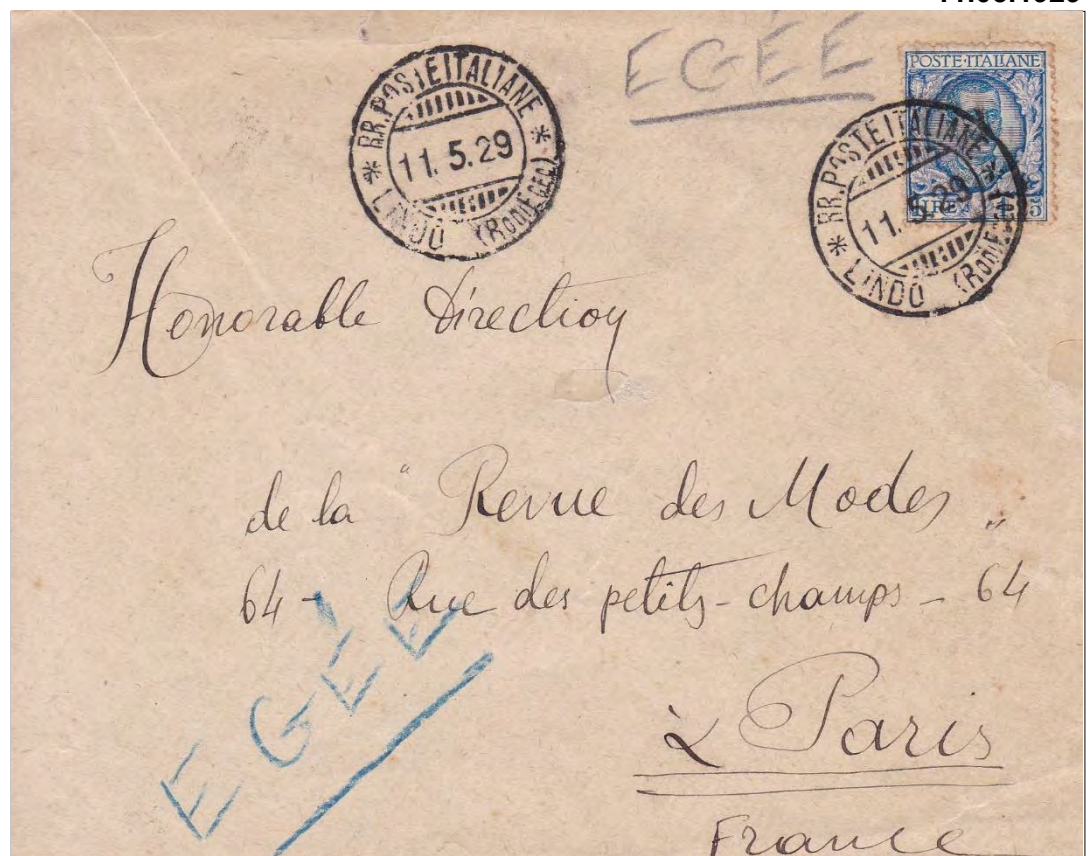 EGÉE
POSTE·ITALIANE
RR. POSTE ITALIANE
11.5.29
LINDO (RODI EGEO)
RR. POSTE ITALIANE
11.5.29
LINDO (RODI EGEO)
Honorable Direction
de la " Revue des Modes "
64 - Rue des petits-champs - 64
EGÉE
à Paris
France